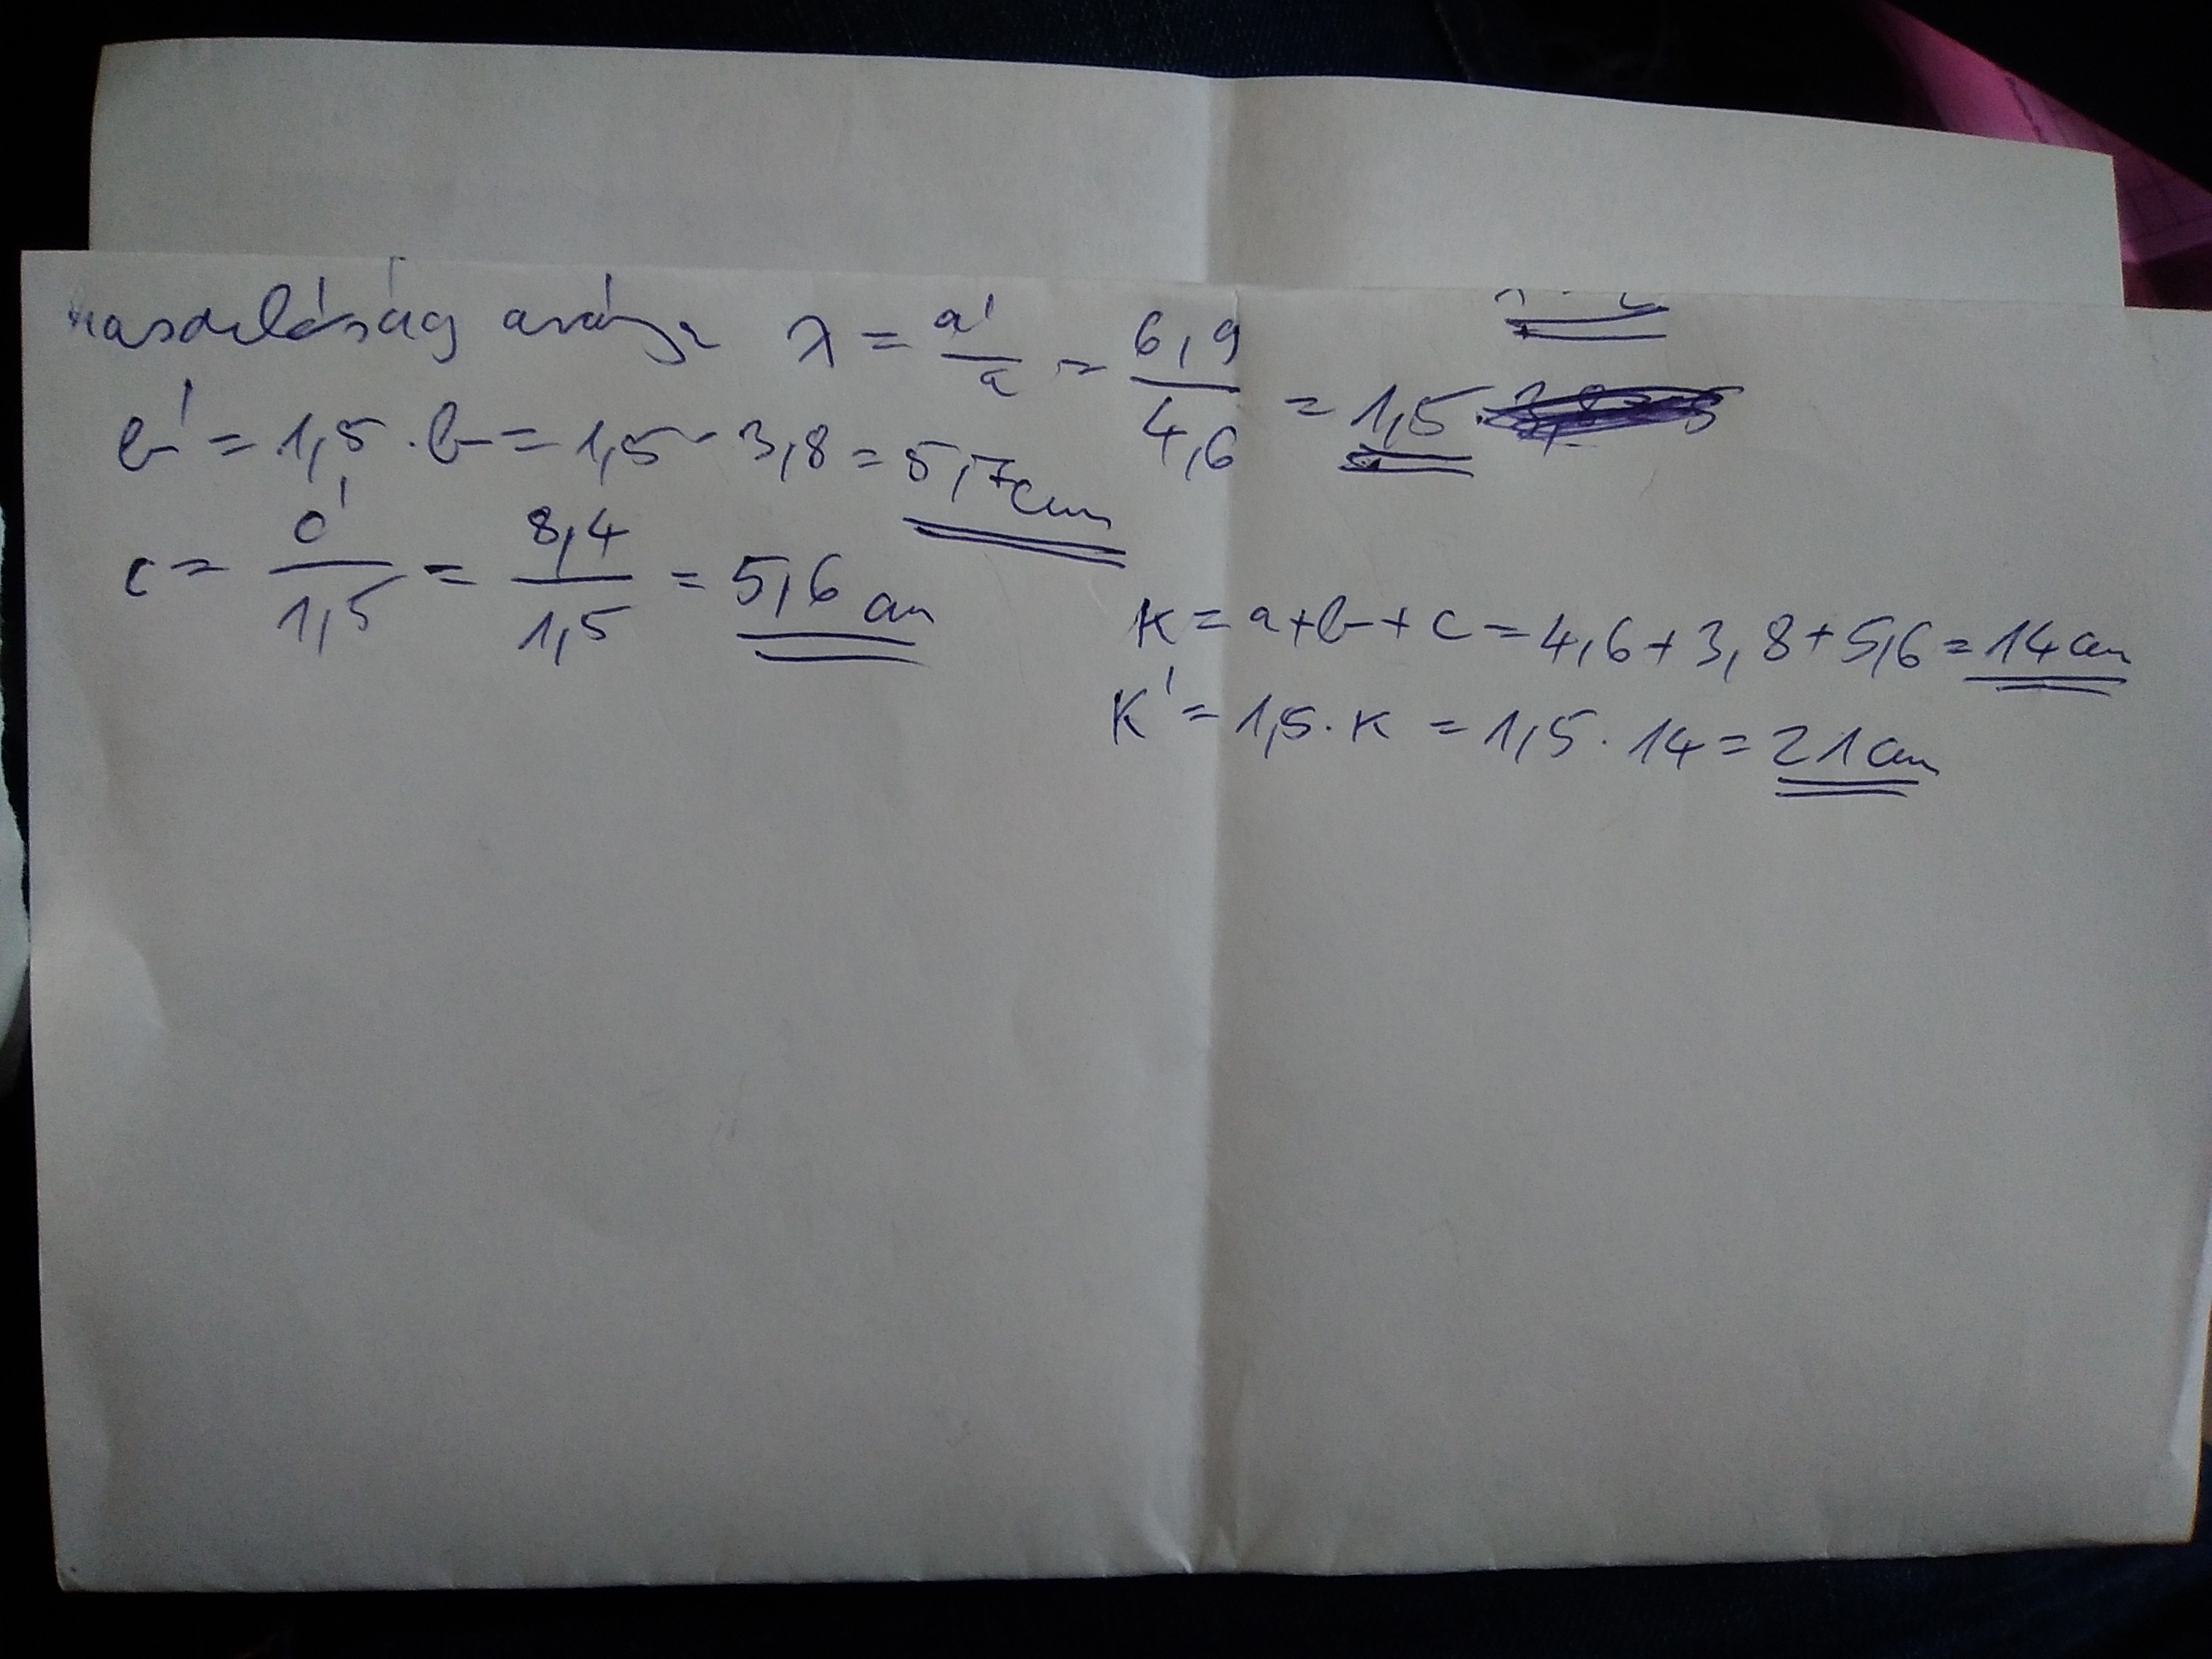 hasonlóság aránya λ = a'/a = 6,9/4,6 = 1,5 ·
b' = 1,5 · b = 1,5 · 3,8 = 5,7 cm
c = c'/1,5 = 8,4/1,5 = 5,6 cm
K = a + b + c = 4,6 + 3,8 + 5,6 = 14 cm
K' = 1,5 · K = 1,5 · 14 = 21 cm